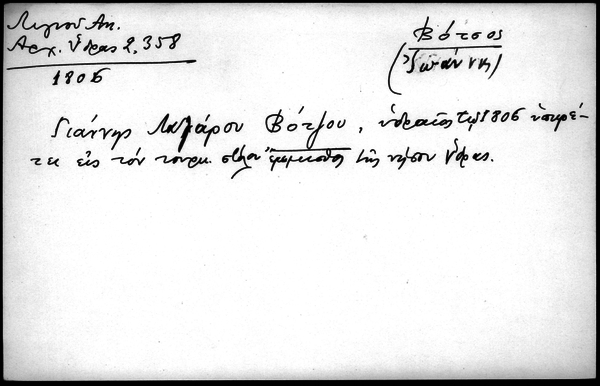 Λιγνού Αν.
Αρχ. Ύδρας 2, 358
1806
Βότσος
(Ἰωάννης)
Γιάννης Λαζάρου Βότζου, ὑδραῖος τῷ 1806 ὑπηρέ-
τει εἰς τὸν τουρκ. στόλον τῆς νήσου Ὕδρας.